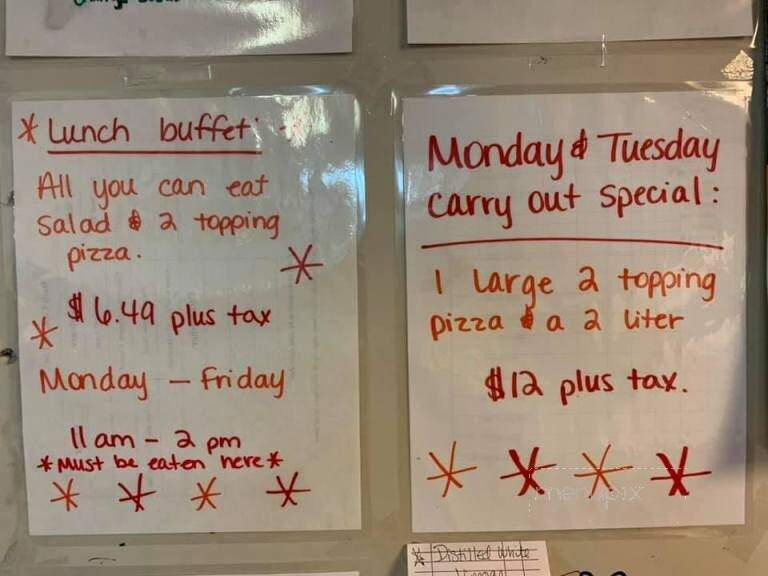 * Lunch buffet:
All you can eat
salad & 2 topping
pizza.
$6.49 plus tax
Monday - Friday
11 am - 2 pm
*Must be eaten here*
Monday & Tuesday
carry out special:
1 Large 2 topping
pizza & a 2 liter
$12 plus tax.
menupix
Distilled White